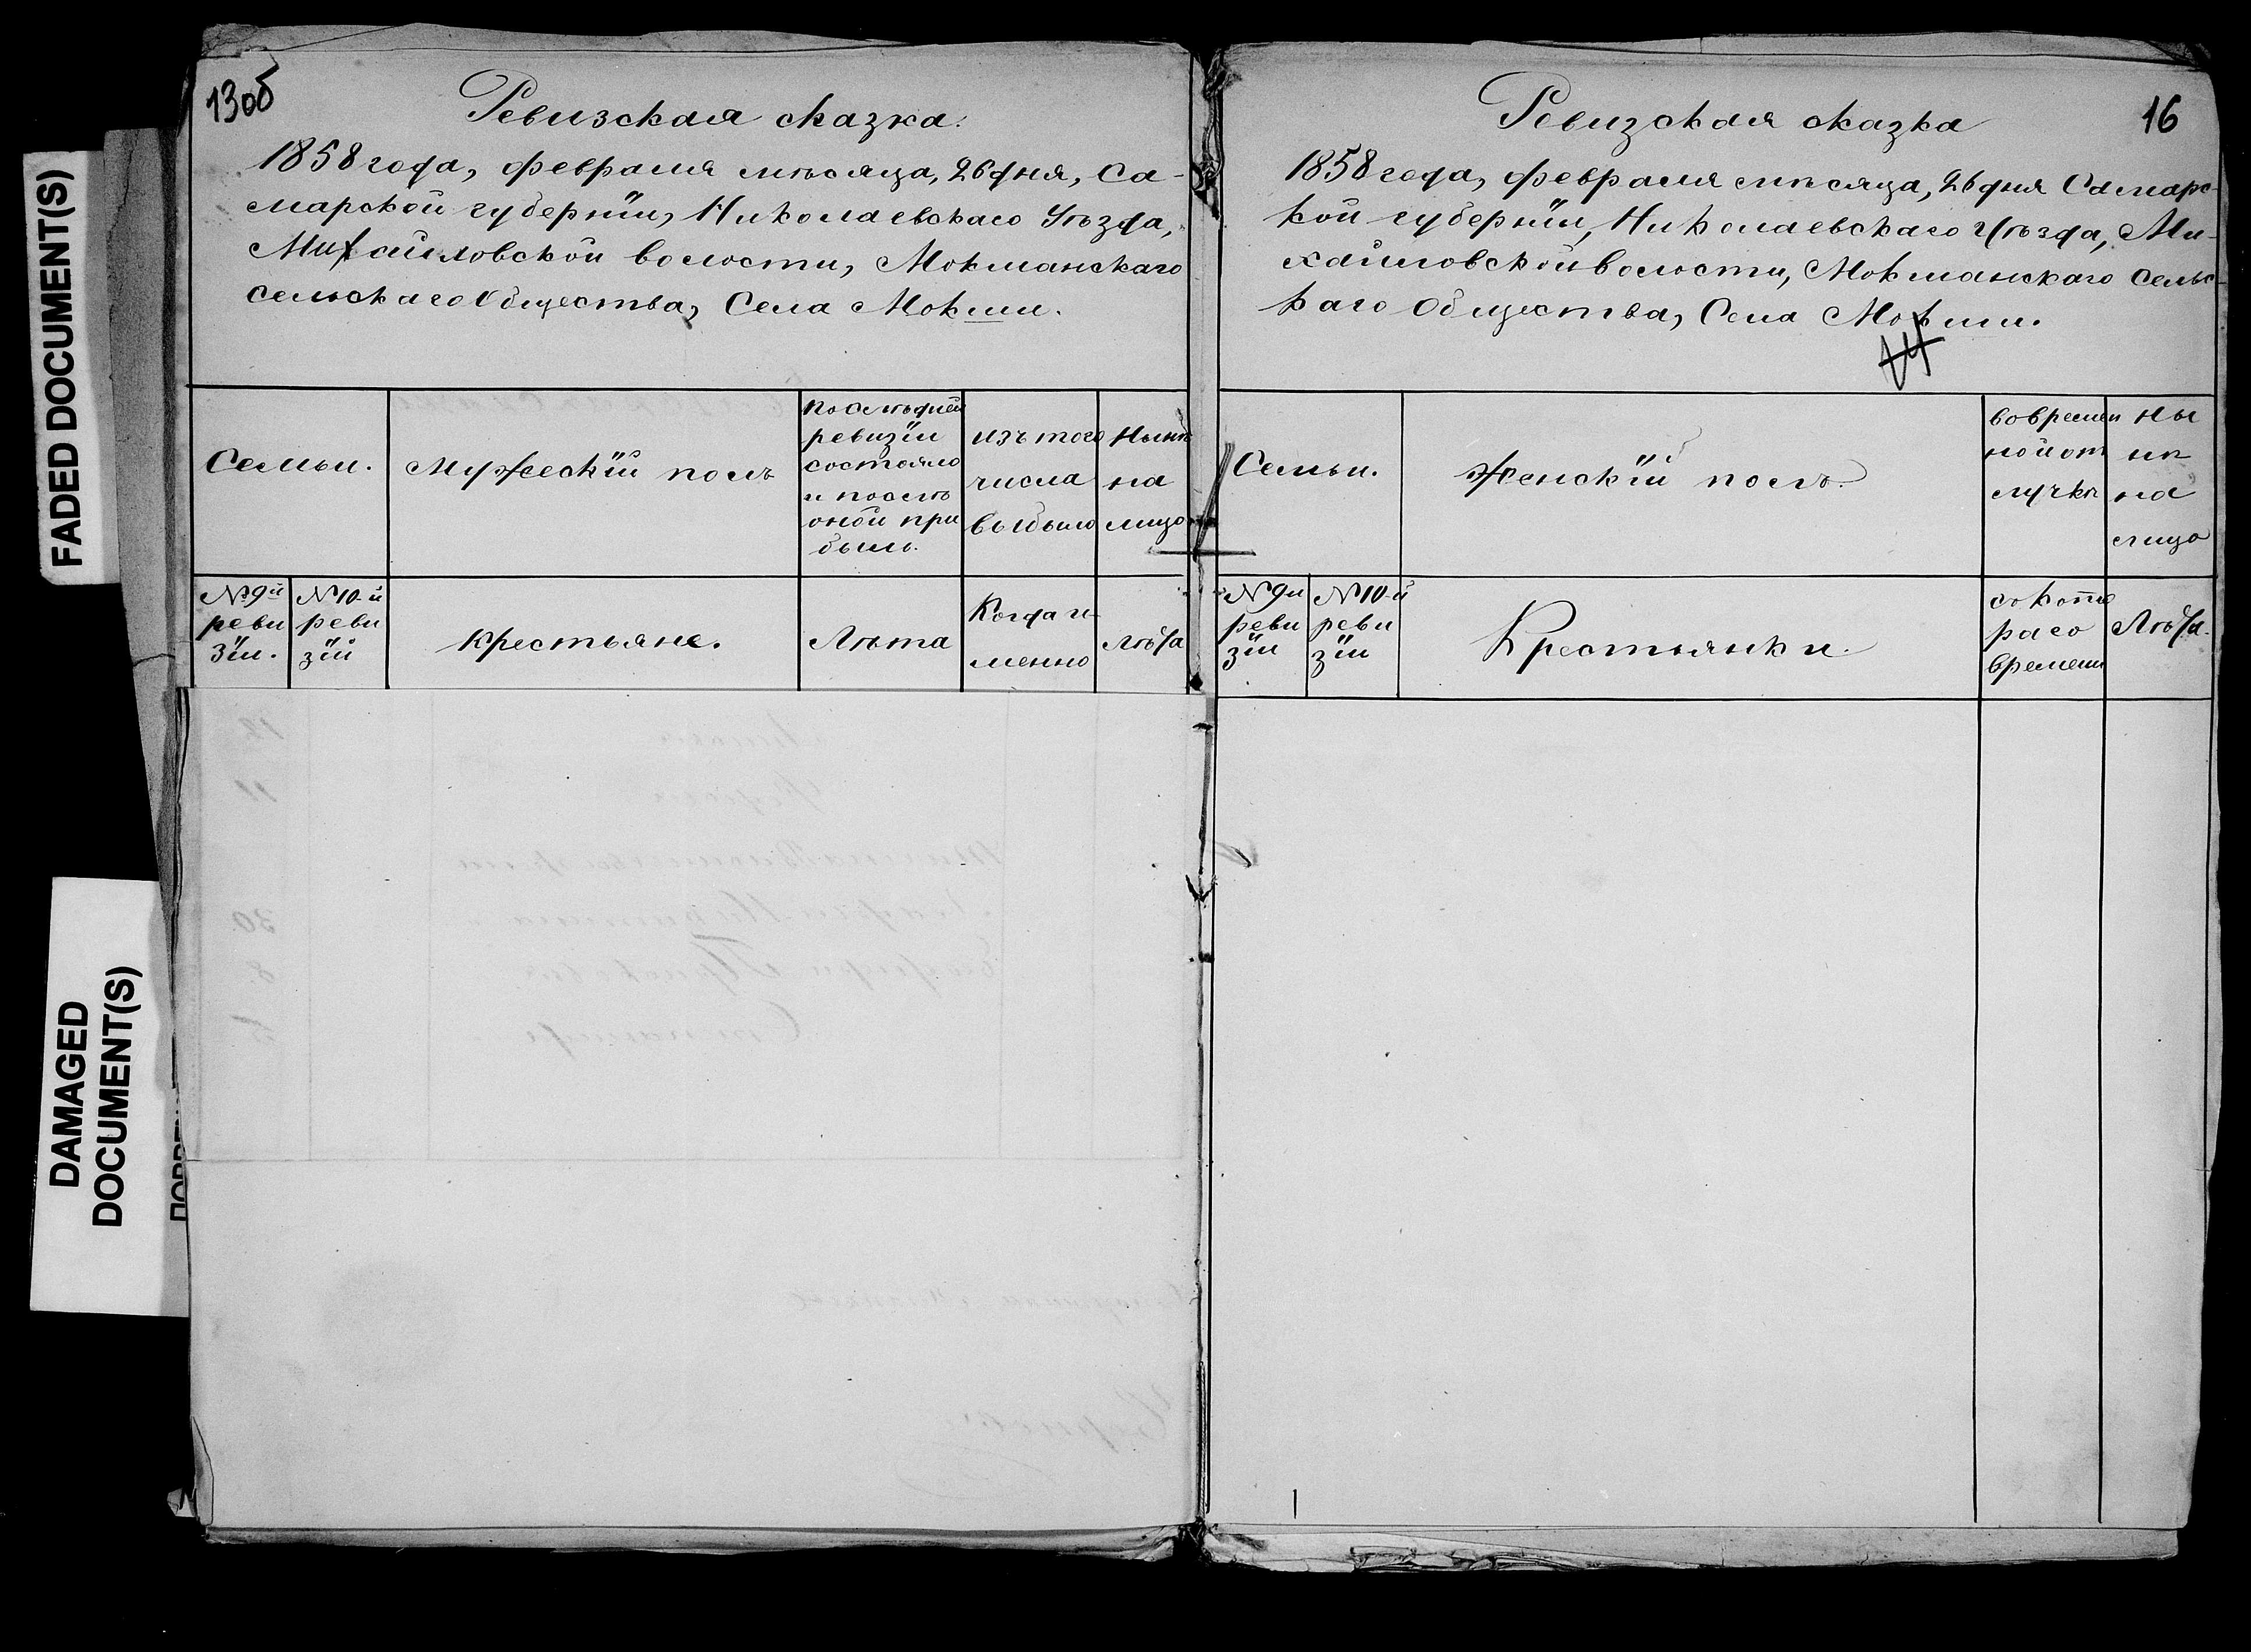 FADED DOCUMENT(S)
DAMAGED
DOCUMENT(S)
13об
Ревизская сказка.
1858 года, февраля мѣсяца, 26 дня, Са-
марской губерніи, Николаевскаго Уѣзда,
Михайловской волости, Мокшанскаго
сельскаго Общества, Села Мокши.
Семьи.
Мужескій полъ
по слѣдней
ревизіи
состояло
и послѣ
оной при
былъ.
изъ того
числа
выбыло
Нынѣ
на
лицо
№ 9й
реви
зіи.
№ 10-й
реви
зіи
Крестьяне.
Лѣта
Когда и-
менно
Лѣта
16
Ревизская сказка
1858 года, февраля мѣсяца, 26 дня Самарс-
кой губерніи, Николаевскаго Уѣзда, Ми-
хайловской волости, Мокшанскаго сельс-
каго Общества, Села Мокши.
14
Семьи.
Женскій полъ.
во времен
ной от
лучкѣ
ны
нѣ
на
лицо
№ 9й
реви
зіи
№ 10-й
реви
зіи
Крестьянки.
с кото
раго
времени
Лѣта.